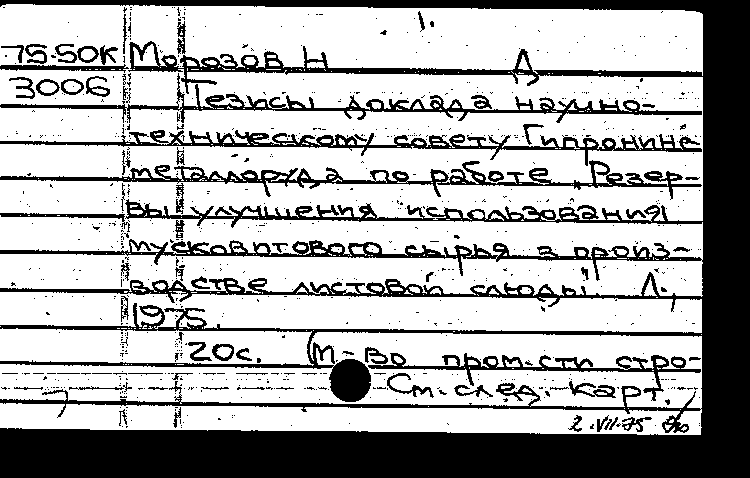 1.
75-50К Морозов Н Д
3006 Тезисы доклада научно-
техническому совету Гипронине-
металлоруда по работе „Резер-
вы улучшения использования
мусковитового сырья в произ-
водстве листовой слюды". Л.,
1975.
20с. (М-во пром-сти стро-
См. след. карт.
2.VII-75